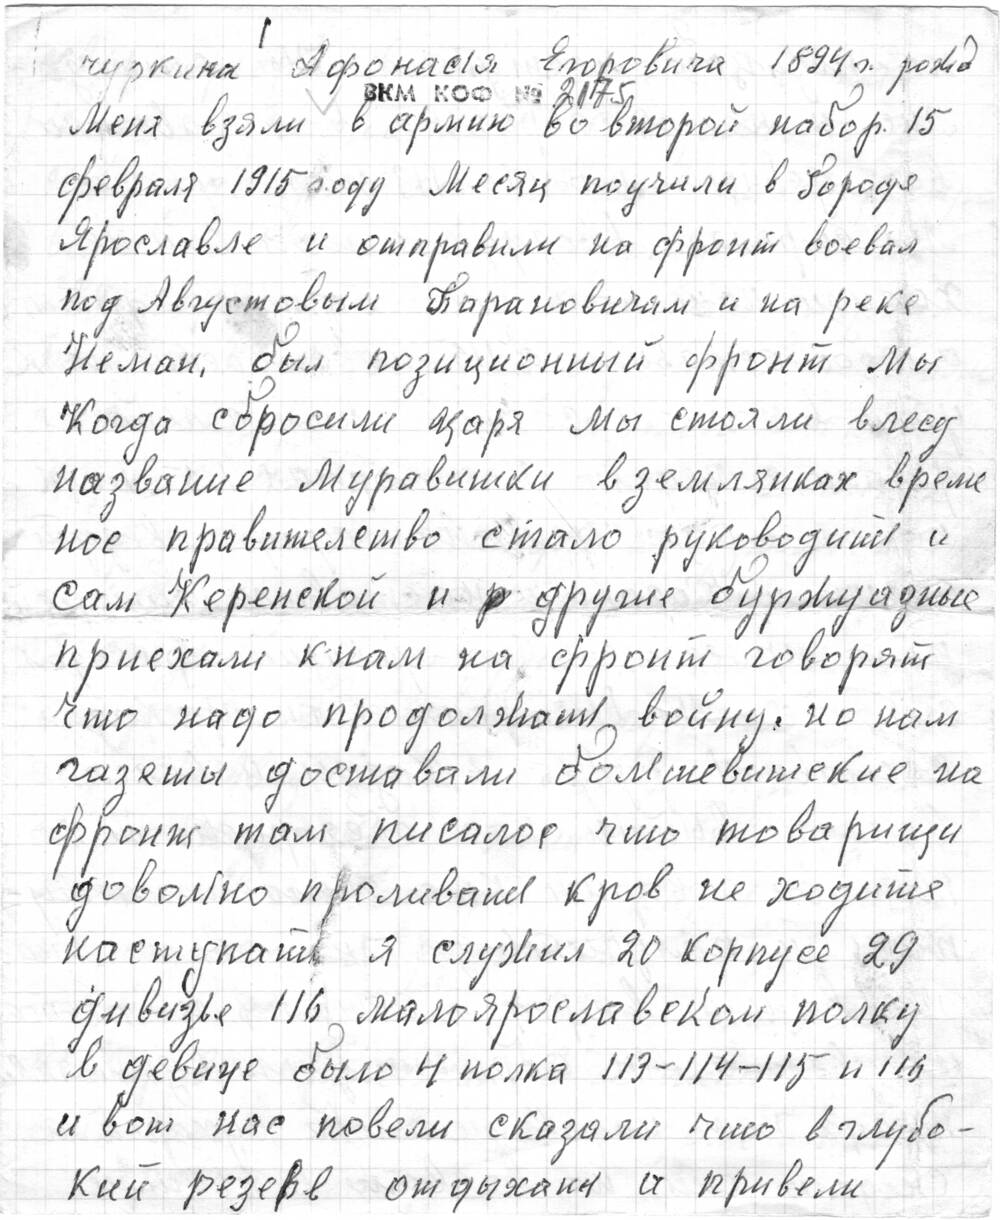 1
чуркина Афонасия Егоровича 1894 г. рожд
ВКМ КОФ № 2175
Меня взяли в армию во второй набор. 15
февраля 1915 году Месяц поучили в Городе
Ярославле и отправили на фронт воевал
под Августовым Барановичам и на реке
Неман, был позиционный фронт Мы
Когда сбросили царя мы стояли влесу
название Муравишки в землянках време
ное правителство стало руководить и
сам Керенской и другие буржуазные
приехали кнам на фронт говорят
что надо продолжать войну. но нам
газеты доставали болшевитские на
фронт там писалос что товарищи
доволно проливать кров не ходите
наступать я служил 20 корпусе 29
дивизье 116 малоярославском полку
в девизе было 4 полка 113-114-115 и 116
и вот нас повели сказали что в глубо-
кий резерв отдыхать и привели